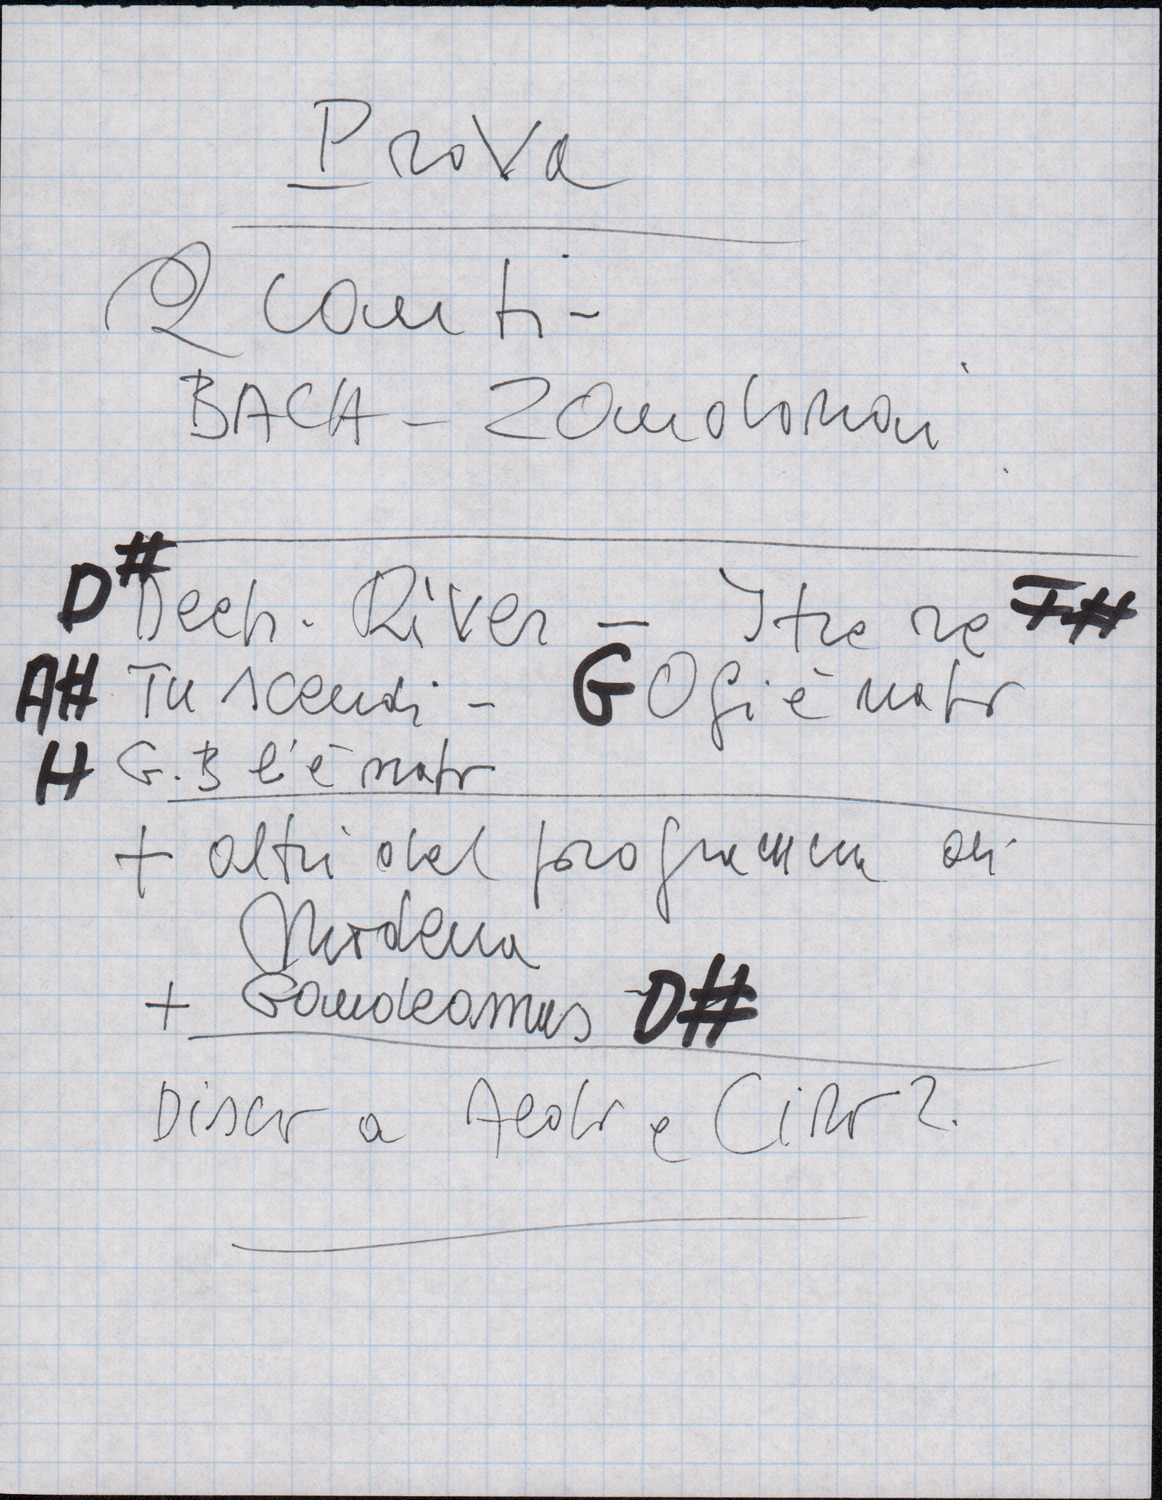 Prova
2 canti -
BACH - Zandonai
D# Deep. River - I tre re F#
A# Tu scendi - G Oggi è nato
H G.B l'è nato
+ altri del programma di
Modena
+ Gaudeamus D#
Disco a Aedo e Ciro?